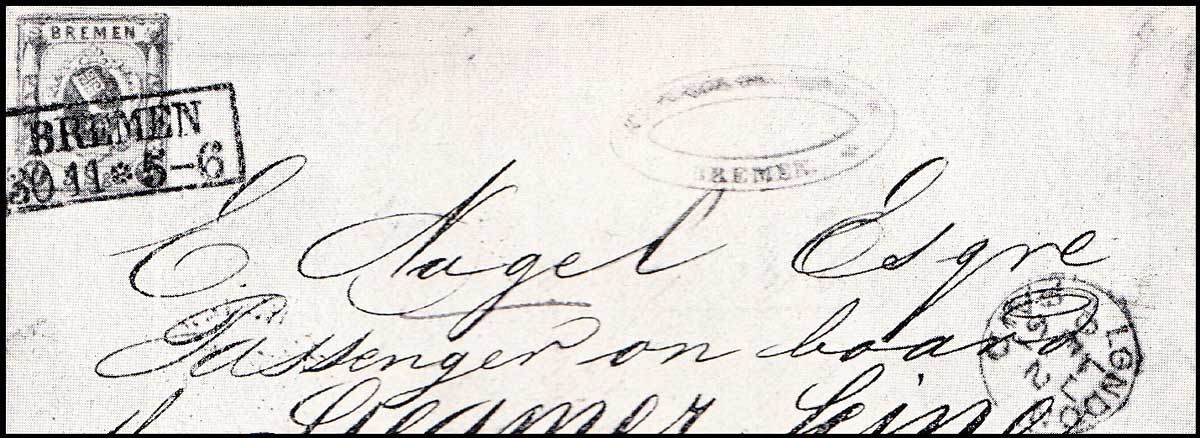 BREMEN
BREMEN
30 11 * 5-6
BREMEN.
E Nagel Esqre
Passenger on board
Steamer
LONDO